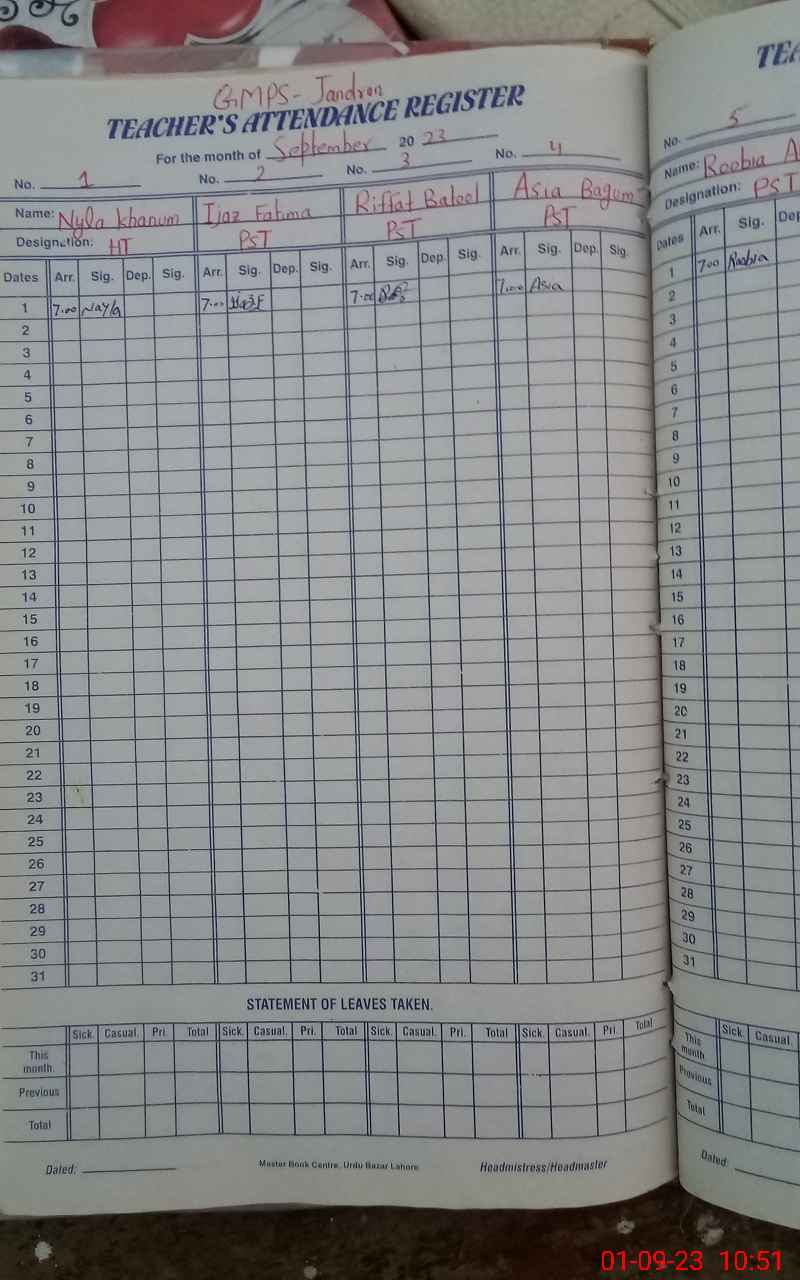 GMPS - Jandron
TEACHER'S ATTENDANCE REGISTER
For the month of September 2023
No. 1 No. 2 No. 3 No. 4
Name: Nyla Khanum Ijaz Fatima Riffat Batool Asia Bagum
Designation: HT PST PST PST
Dates Arr. Sig. Dep. Sig. Arr. Sig. Dep. Sig. Arr. Sig. Dep. Sig. Arr. Sig. Dep. Sig.
1 7.00 Nayla 7.00 7.00 7.00 Asia
2
3
4
5
6
7
8
9
10
11
12
13
14
15
16
17
18
19
20
21
22
23
24
25
26
27
28
29
30
31
STATEMENT OF LEAVES TAKEN.
Sick. Casual. Pri. Total Sick. Casual. Pri. Total Sick. Casual. Pri. Total Sick. Casual. Pri. Total
This month.
Previous
Total
Dated: Master Book Centre, Urdu Bazar Lahore Headmistress/Headmaster
No. 5
Name: Roobia
Designation: PST
Dates Arr. Sig.
1 700 Roobia
2
3
4
5
6
7
8
9
10
11
12
13
14
15
16
17
18
19
20
21
22
23
24
25
26
27
28
29
30
31
Sick. Casual.
This month
Previous
Total
Dated:
01-09-23 10:51